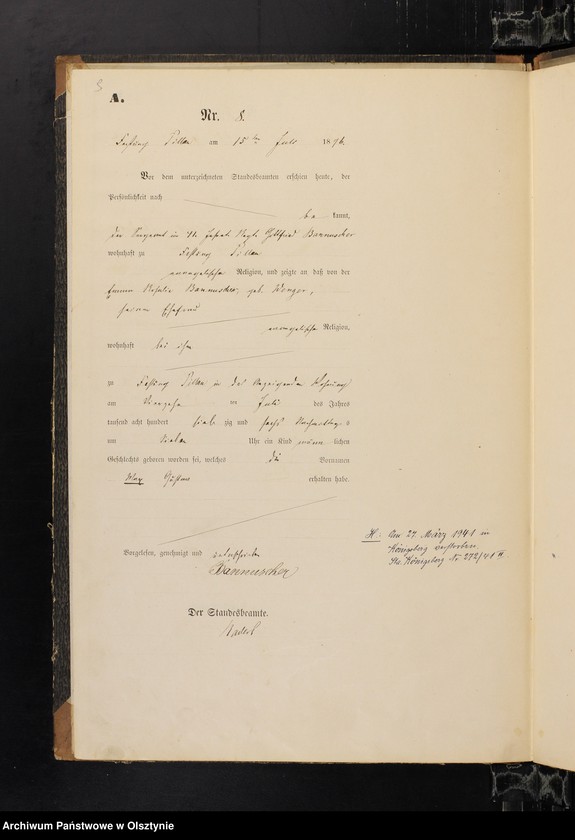 A.
Nr. 8.
Festung Pillau am 15ten Juli 1876.
Vor dem unterzeichneten Standesbeamten erschien heute, der
Persönlichkeit nach
be kannt,
der Sergeant im Gottfried Bannuscher
wohnhaft zu Festung Pillau
evangelischer Religion, und zeigte an daß von der
Emma Rosalie Bannuscher, geb. Wenger,
seiner Ehefrau
evangelischer Religion,
wohnhaft bei ihm
zu Festung Pillau in des Anzeigenden Wohnung
am Vierzehn ten Juli des Jahres
tausend acht hundert sieb zig und sechs Nachmittags
um sieben Uhr ein Kind männ lichen
Geschlechts geboren worden sei, welches die Vornamen
Max Gustav erhalten habe.
Vorgelesen, genehmigt und unterschrieben
Bannuscher
Der Standesbeamte.
H: Am 27. März 1941 in
Königsberg verstorben.
Sta. Königsberg Nr 272/41 II
Archiwum Państwowe w Olsztynie